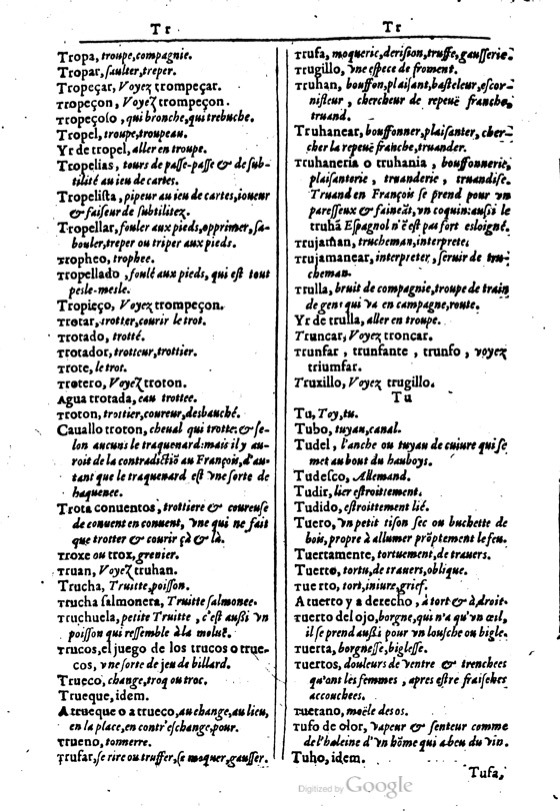 Tr
Tropa, troupe, compagnie.
Tropar, saulter, treper.
Tropeçar, Voyez trompeçar.
Tropeçon, Voyez trompeçon.
Tropeçoso, qui bronche, qui trebuche.
Tropel, troupe, troupeau.
Yr de tropel, aller en troupe.
Tropelias, tours de passe-passe & de sub-
tilité au ieu de cartes.
Tropelista, pipeur au ieu de cartes, ioueur
& faiseur de subtilitez.
Tropellar, fouler aux pieds, opprimer, sa-
bouler, treper ou triper aux pieds.
Tropheo, trophee.
Tropellado, foulé aux pieds, qui est tout
pesle-mesle.
Tropieço, Voyez trompeçon.
Trotar, trotter, courir le trot.
Trotado, trotté.
Trotador, trotteur, trottier.
Trote, le trot.
Trotero, Voyez troton.
Agua trotada, eau trottee.
Troton, trottier, coureur, desbauché.
Cauallo troton, cheual qui trotte: & se-
lon aucuns le traquenard: mais il y au-
roit de la contradictiō au François, d'au-
tant que le traquenard est vne sorte de
haquenee.
Trota conuentos, trottiere & coureuse
de conuent en conuent, vne qui ne fait
que trotter & courir çà & là.
Troxe ou trox, grenier.
Truan, Voyez truhan.
Trucha, Truitte, poisson.
Trucha salmonera, Truitte salmonee.
Truchuela, petite Truitte, c'est aussi vn
poisson qui ressemble à la molue.
Trucos, el juego de los trucos o true-
cos, vne sorte de jeu de billard.
Trueco, change, troq ou troc.
Trueque, idem.
A trueque o a trueco, au change, au lieu,
en la place, en contr'eschange, pour.
Trueno, tonnerre.
Trufar, se rire ou truffer, se moquer, gausser.
Tr
Trufa, moquerie, derision, truffe, gausserie.
Trugillo, vne espece de froment.
Truhan, bouffon, plaisant, basteleur, escor-
nisteur, chercheur de repeuë franche,
truand.
Truhanear, bouffonner, plaisanter, cher-
cher la repeuë franche, truander.
Truhaneria o truhania, bouffonnerie,
plaisanterie, truanderie, truandise.
Truand en François se prend pour vn
paresseux & faineāt, vn coquin: aussi le
truhā Espagnol n'ē est pas fort esloigné.
Trujaman, trucheman, interprete.
Trujamanear, interpreter, seruir de tru-
cheman.
Trulla, bruit de compagnie, troupe de train
de gens qui va en campagne, route.
Yr de trulla, aller en troupe.
Truncar, Voyez troncar.
Trunfar, trunfante, trunfo, voyez
triumfar.
Truxillo, Voyez trugillo.
Tu
Tu, Toy, tu.
Tubo, tuyau, canal.
Tudel, l'anche ou tuyau de cuiure qui se
met au bout du hauboys.
Tudesco, Allemand.
Tudir, lier estroittement.
Tudido, estroittement lié.
Tuero, vn petit tison sec ou buchette de
bois, propre à allumer prōptement le feu.
Tuertamente, tortuement, de trauers.
Tuerto, tortu, de trauers, oblique.
Tuerto, tort, iniure, grief.
A tuerto y a derecho, à tort & à droit.
Tuerto del ojo, borgne, qui n'a qu'vn œil,
il se prend aussi pour vn lousche ou bigle.
Tuerta, borgnesse, biglesse.
Tuertos, douleurs de ventre & trenchees
qu'ont les femmes, apres estre fraisches
accouchees.
Tuetano, moële des os.
Tufo de olor, vapeur & senteur comme
de l'haleine d'vn hōme qui a beu du vin.
Tuho, idem.
Tufa,
Digitized by Google